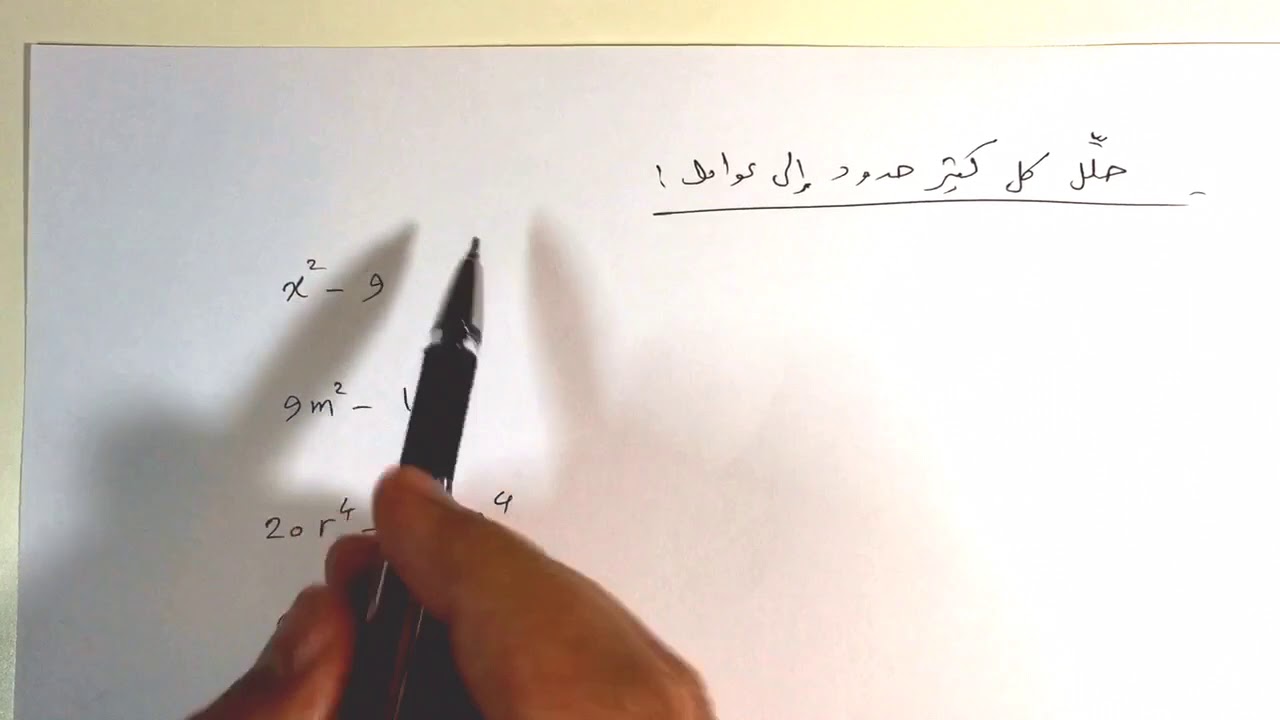 حلِّل كل كثير حدود إلى عوامل :
x² - 9
9m² - 1
20 r⁴ - ⁴